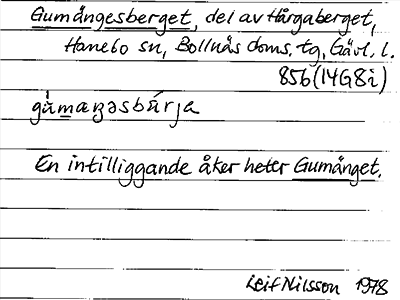 Gumångesberget, del av Hårgaberget,
Hanebo sn, Bollnäs doms. tg, Gävl. l.
856 (14G8i)
gù̀maŋəsbúrja
En intilliggande åker heter Gumånget.
Leif Nilsson 1978